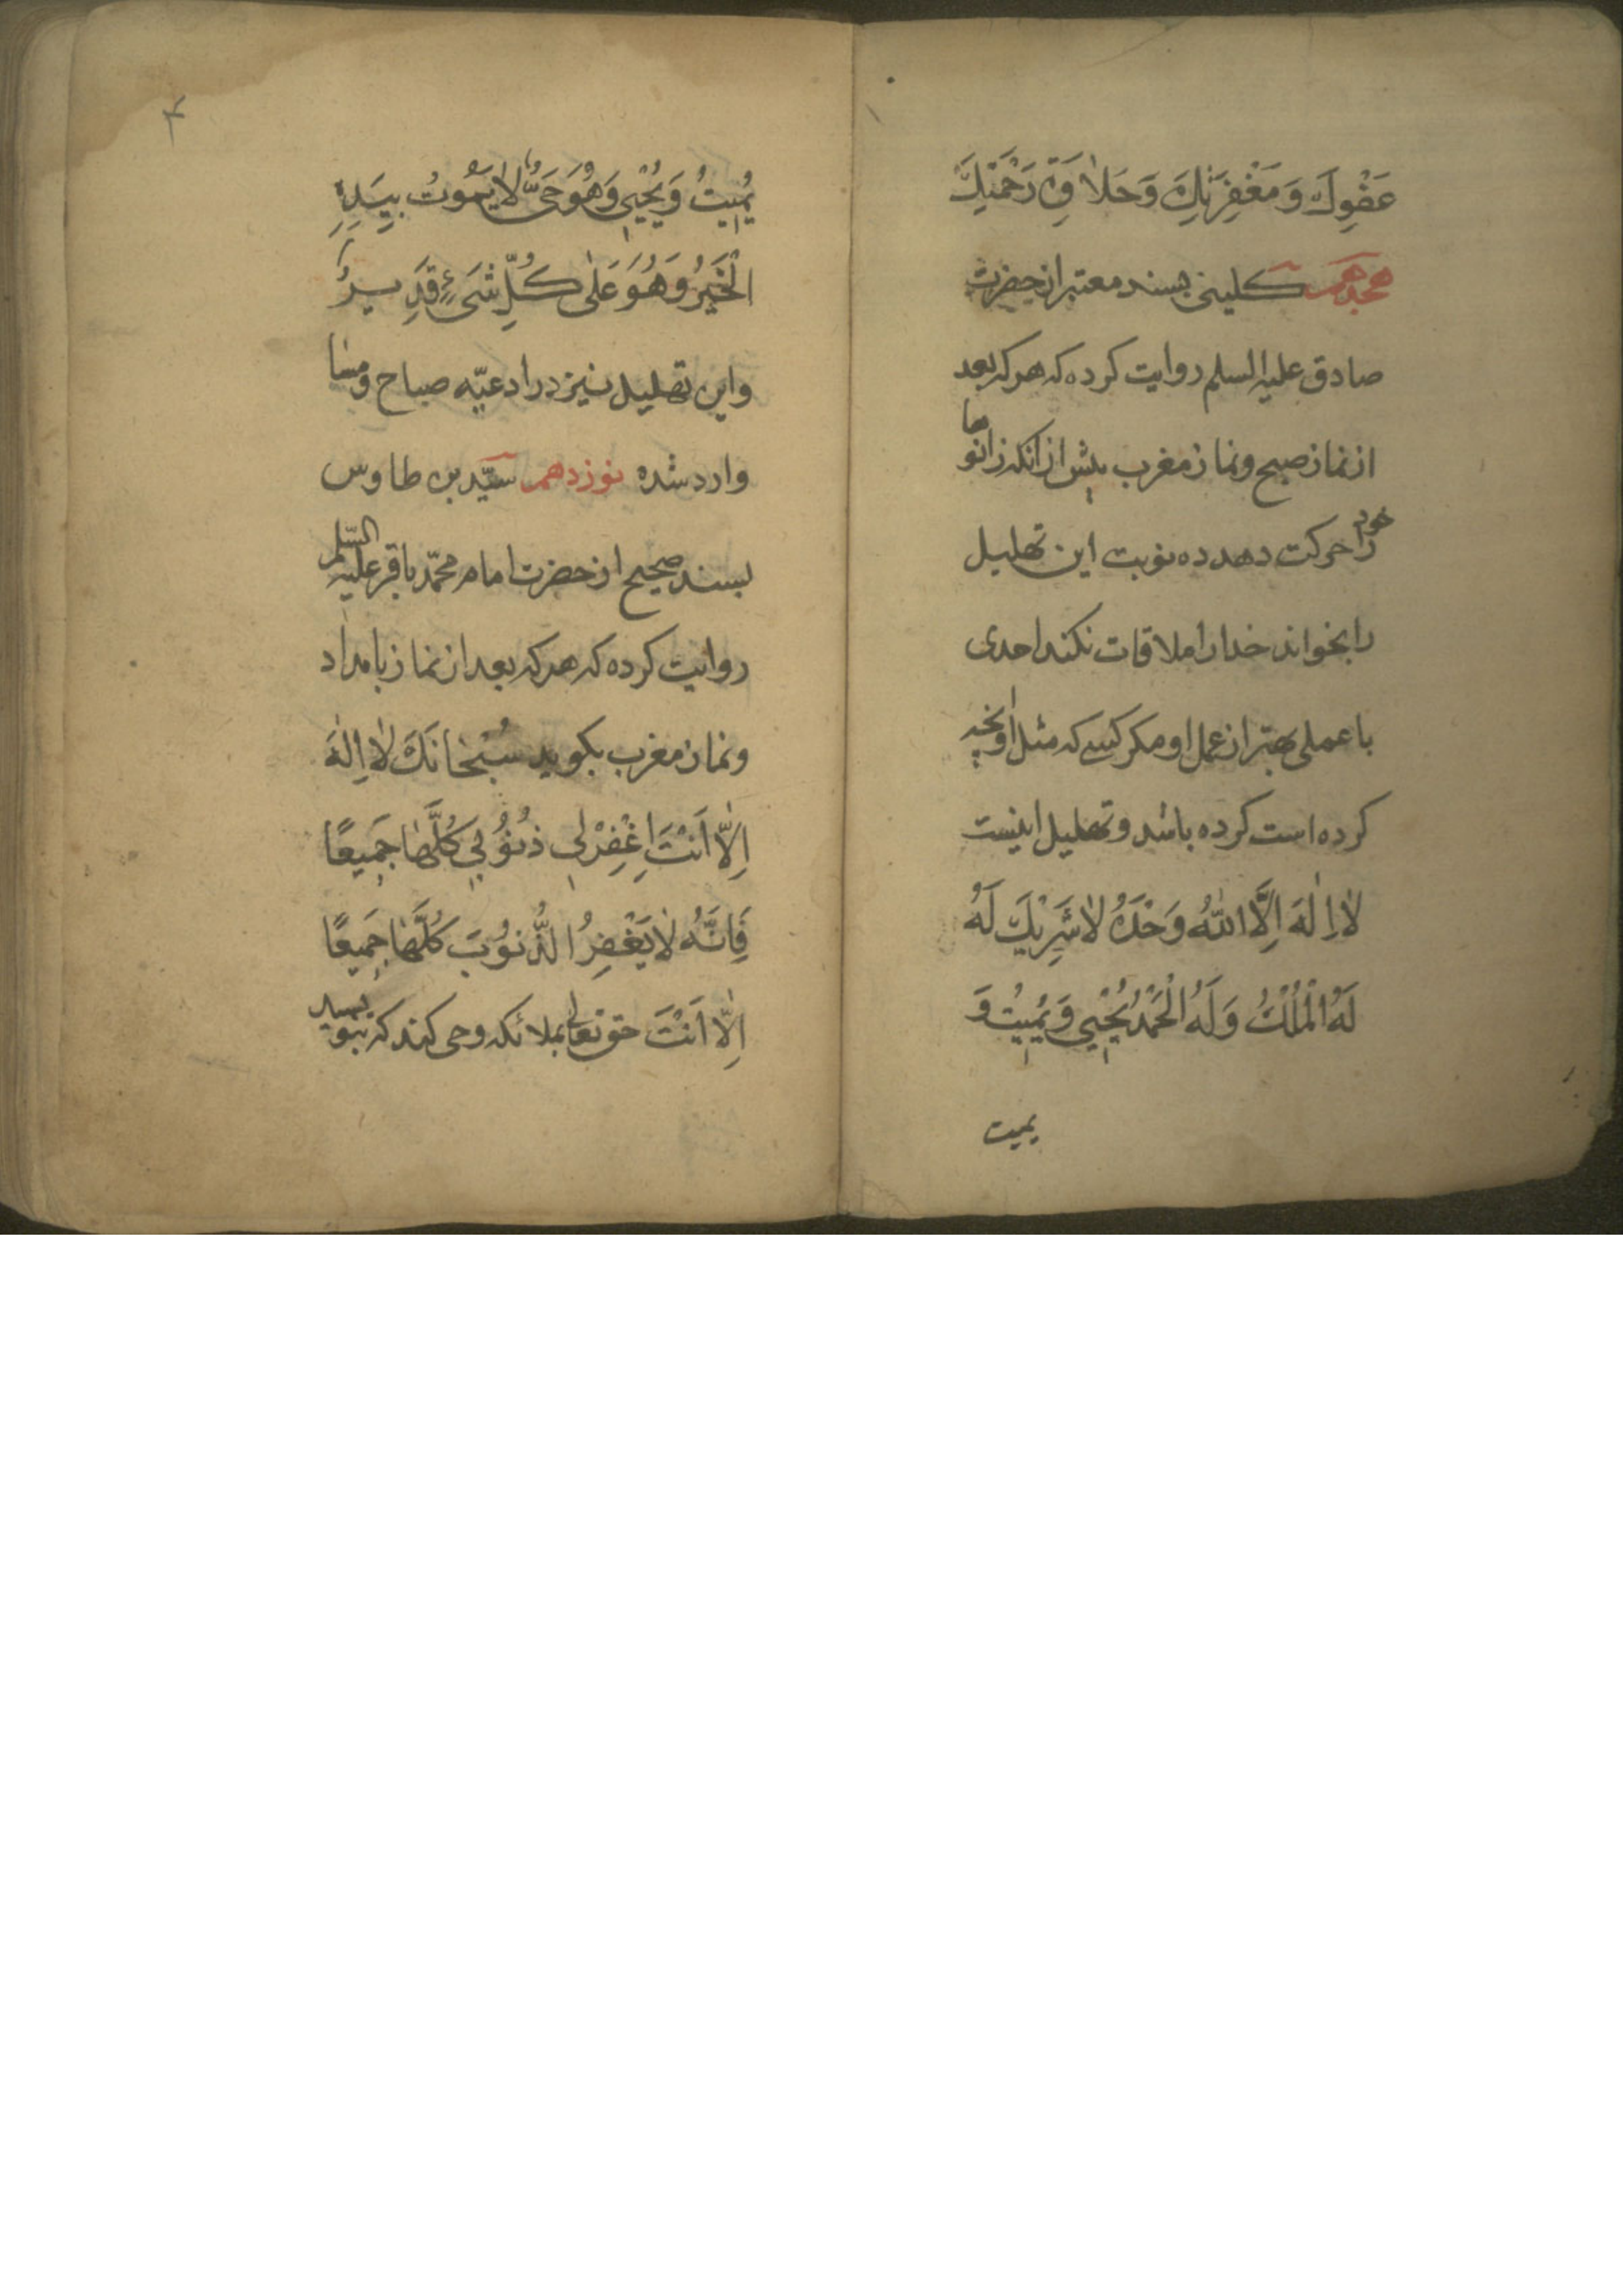 عَفْوِكَ وَ مَغْفِرَتِكَ وَ حَلاٰوَةَ رَحْمَتِكَ
هجدهم کلینی بسند معتبر از حضرت
صادق علیه السلم روایت کرده که هر که بعد
از نماز صبح و نماز مغرب پیش از آنکه زانوها
خود را حرکت دهد ده نوبت این تهلیل
را بخواند خدا را ملاقات نکند احدی
با عملی بهتر از عمل او مکر کسی که مثل آنچه او
کرده است کرده باشد و تهلیل اینست
لاٰ اِلٰهَ اِلَّا اللّٰهُ وَحْدَهُ لاٰ شَرِيْكَ لَهُ
لَهُ الْمُلْكُ وَ لَهُ الْحَمْدُ يُحْيِي وَ يُمِيْتُ وَ
یمیت
۴
يُمِيتُ وَ يُحْيِي وَ هُوَ حَيٌّ لاٰ يَمُوتُ بِيَدِهِ
الْخَيْرُ وَ هُوَ عَلٰى كُلِّ شَيْءٍ قَدِيرٌ
و این تهلیل نیز در ادعیّه صباح و مسا
وارد شده نوزدهم سیّد بن طاوس
بسند صحیح از حضرت امام محمّد باقر علیه السّلم
روایت کرده که هر که بعد از نماز بامداد
و نماز مغرب بکوید سُبْحٰانَكَ لاٰ اِلٰهَ
اِلاّٰ اَنْتَ اِغْفِرْ لِي ذُنُوُبِي كُلَّهٰا جَمِيعًا
فَاِنَّهُ لاٰ يَغْفِرُ الذُّنُوُبَ كُلَّهٰا جَمِيعًا
اِلاّٰ اَنْتَ حق تعالی بملائکه وحی کند که بنویسید